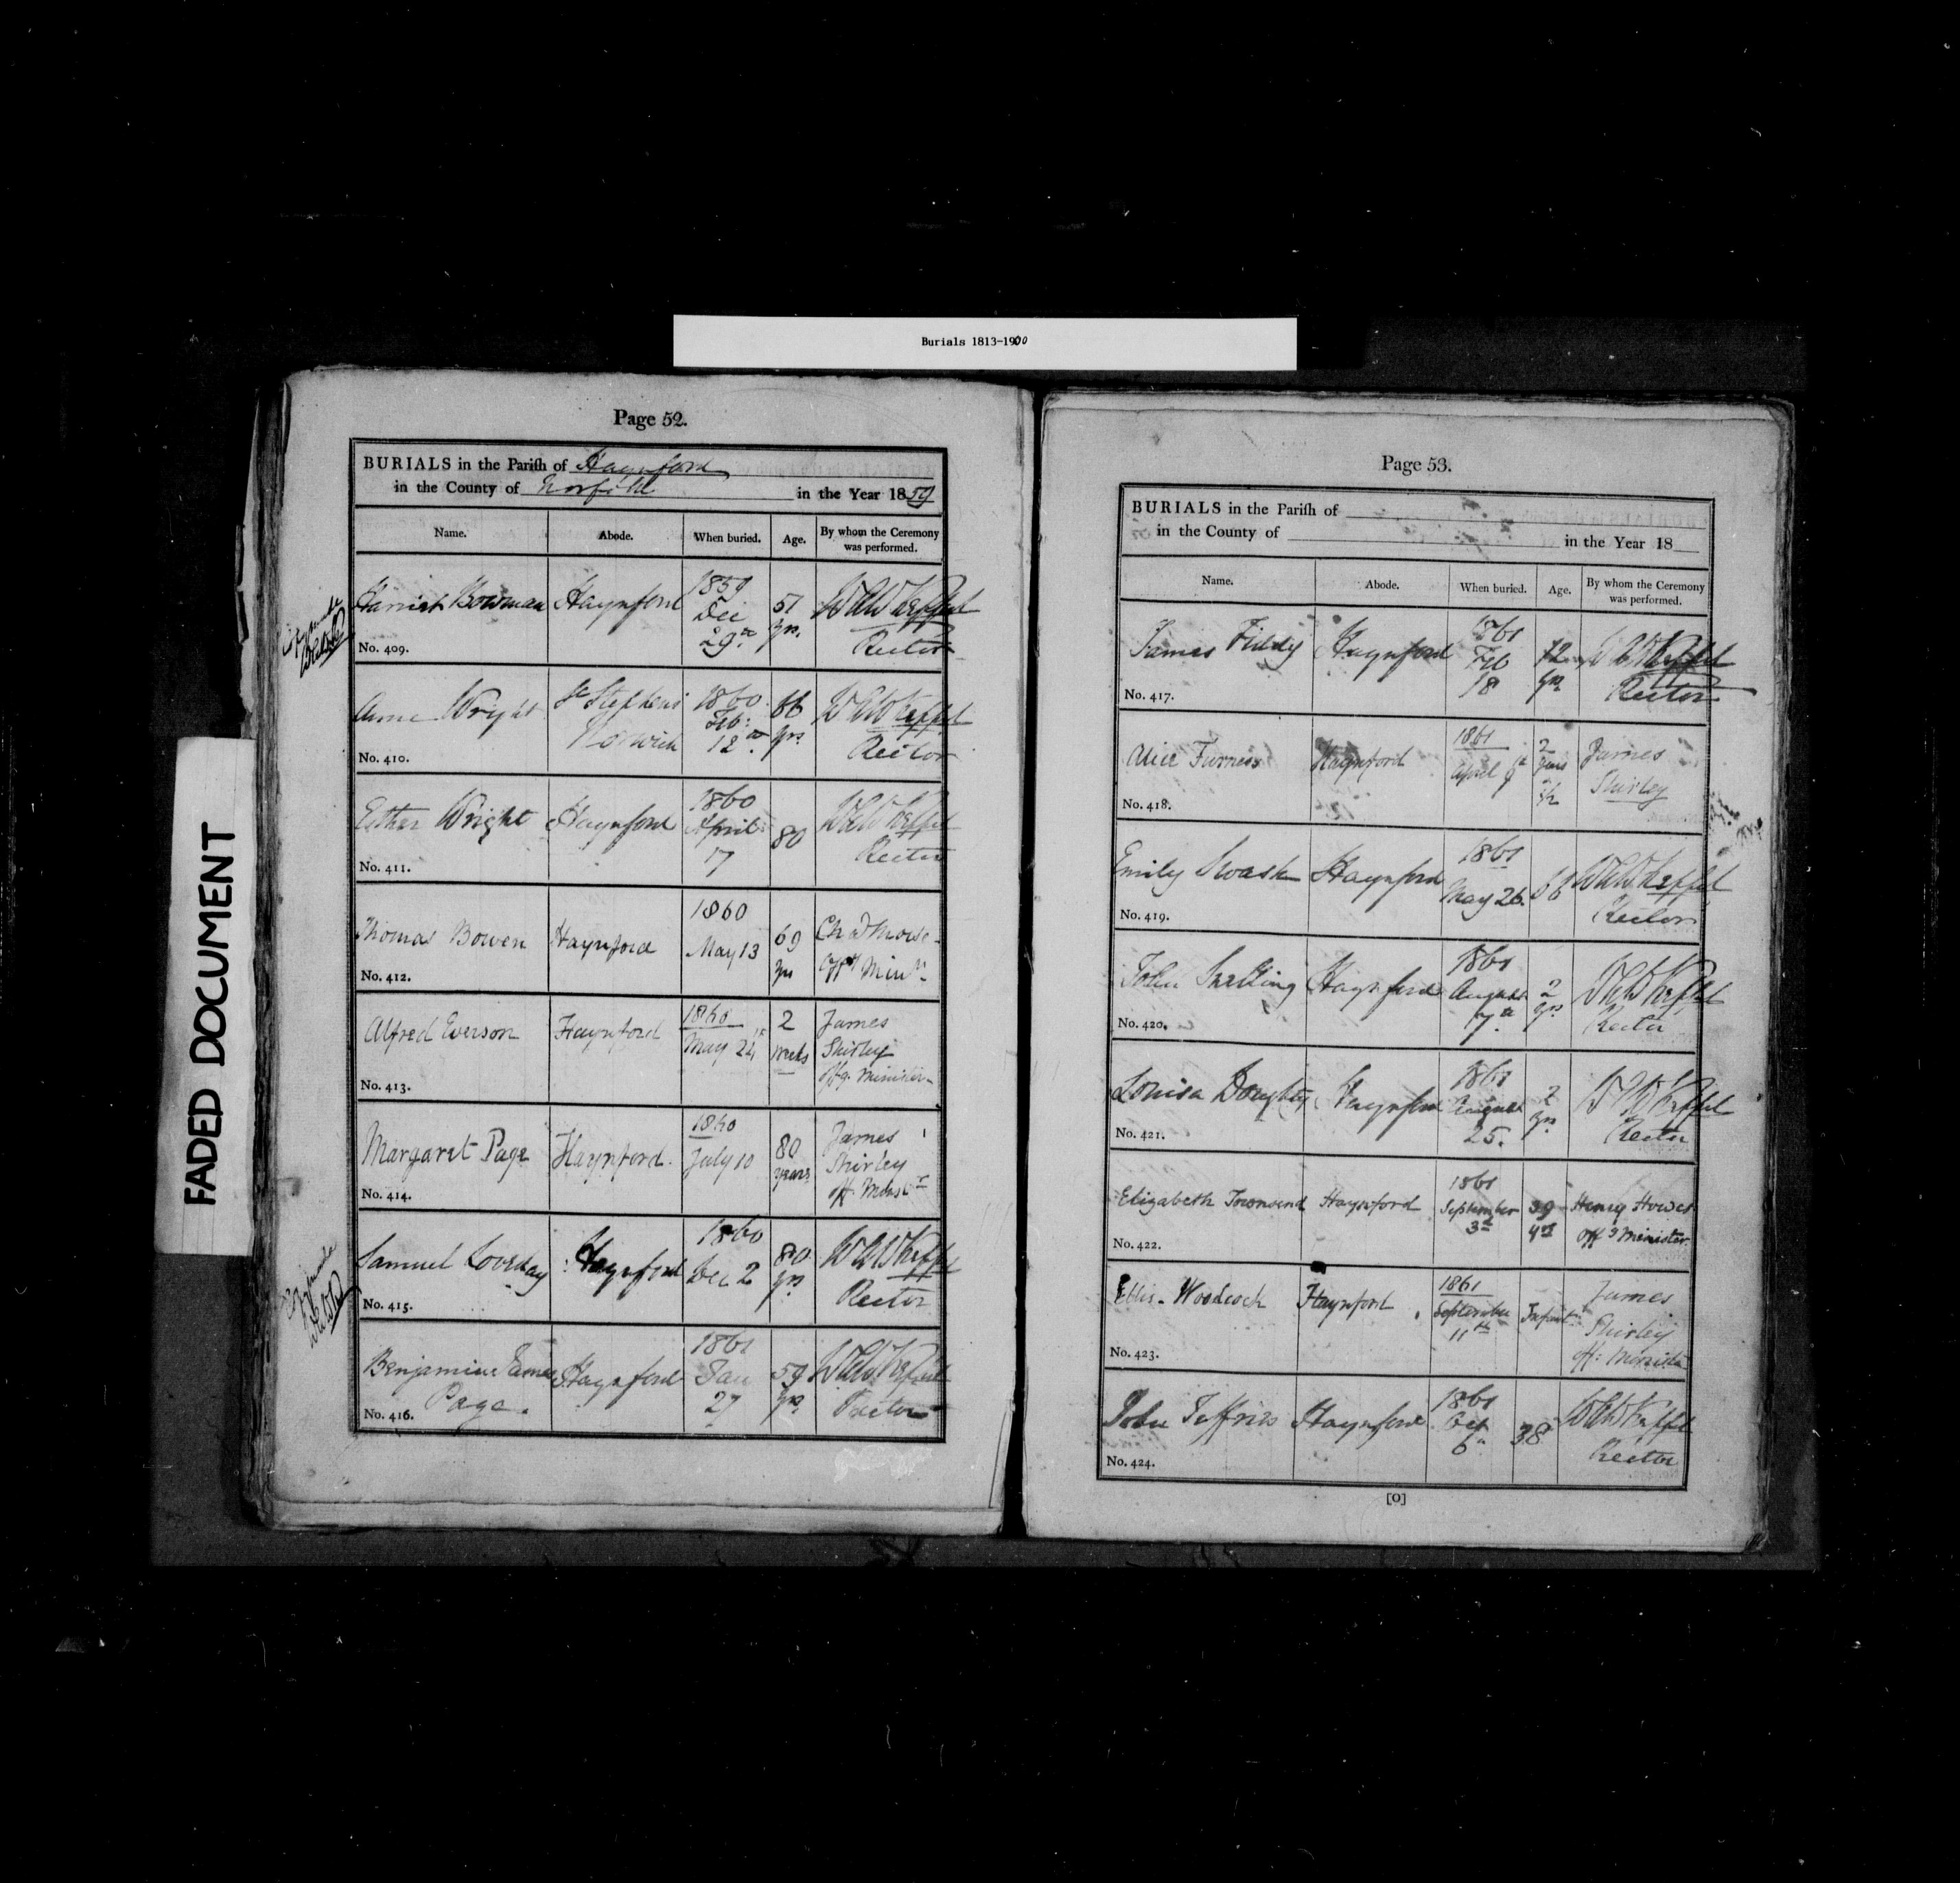 Burials 1813-1900
FADED DOCUMENT
Page 52.
BURIALS in the Parish of Haynford
in the County of Norfolk in the Year 1859
Name. Abode. When buried. Age. By whom the Ceremony was performed.
Copy made
Harriet Bowman Haynford 1859 Dec 29th 51 yrs. W A W Keppel Rector
No. 409.
Anne Wright St Stephens Norwich 1860 Feb: 12th 86 yrs W A W Keppel Rector
No. 410.
Esther Wright Haynford 1860 April 17 80 W A W Keppel Rector
No. 411.
Thomas Bowen Haynford 1860 May 13 69 yrs Offg Minr
No. 412.
Alfred Everson Haynford 1860 May 24 2 weeks James Shirley Offg. Minister
No. 413.
Margaret Page Haynford. 1860 July 10 80 years James Shirley Off. Minstr
No. 414.
Copy made
Samuel Loveday Haynford 1860 Dec 2 80 yrs W A W Keppel Rector
No. 415.
Benjamine James Page. Haynford 1861 Jan 27 59 yrs. W A W Keppel Rector
No. 416.
Page 53.
BURIALS in the Parish of
in the County of in the Year 18
Name. Abode. When buried. Age. By whom the Ceremony was performed.
James Fiddy Haynford 1861 Feb 18 72 yrs W A W Keppel Rector
No. 417.
Alice Furness Haynford 1861 April 9th 2 years James Shirley
No. 418.
Emily Swash Haynford 1861 May 26. W A W Keppel Rector
No. 419.
John Haynford 1861 August 7th 2 yrs W A W Keppel Rector
No. 420.
Louisa Doughty Haynford 1861 August 25. 2 yrs W A W Keppel Rector
No. 421.
Elizabeth Townsend Haynford 1861 September 3d 39 yrs Henry Howes Offg Minister
No. 422.
Ellis Woodcock Haynford 1861 September 11th Infant James Shirley Off: Minister
No. 423.
John Jeffries Haynford 1861 Oct 6th 38 W A W Keppel Rector
No. 424.
[O]